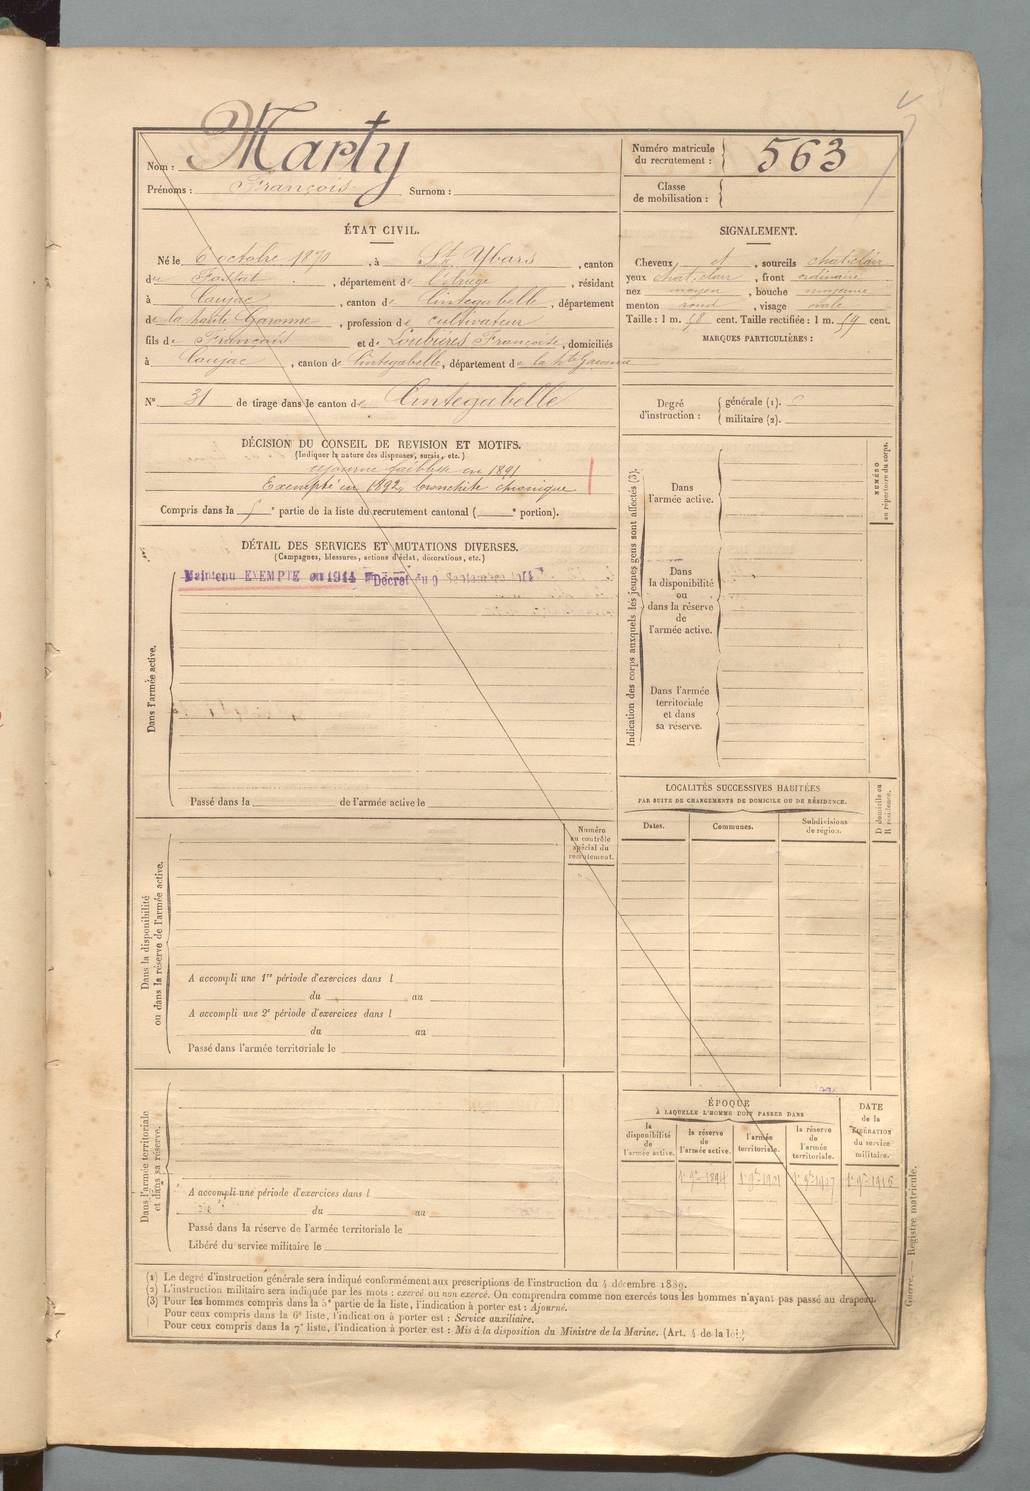 Nom : Marty
Prénoms : François Surnom :
Numéro matricule du recrutement : 563
Classe de mobilisation :
ÉTAT CIVIL.
Né le 6 octobre 1870, à St Ybars, canton
du Fossat, département de l'Ariège, résidant
à Caujac, canton de Cintegabelle, département
de la haute Garonne, profession de cultivateur
fils de François et de Loubières Françoise, domiciliés
à Caujac, canton de Cintegabelle, département de la hte Garonne
N° 31 de tirage dans le canton de Cintegabelle
SIGNALEMENT.
Cheveux et, sourcils chat clair
yeux chat clair, front ordinaire
nez moyen, bouche moyenne
menton rond, visage ovale
Taille : 1 m. 58 cent. Taille rectifiée : 1 m. 59 cent.
MARQUES PARTICULIÈRES :
Degré d'instruction : générale (1).
militaire (2).
DÉCISION DU CONSEIL DE REVISION ET MOTIFS.
(Indiquer la nature des dispenses, sursis, etc.)
ajourné faiblesse en 1891
Exempté en 1892, bronchite chronique
Compris dans la e partie de la liste du recrutement cantonal ( e portion).
DÉTAIL DES SERVICES ET MUTATIONS DIVERSES.
(Campagnes, blessures, actions d'éclat, décorations, etc.)
Maintenu EXEMPTÉ en 1914 Décret du 9 Septembre 1914
Dans l'armée active.
Passé dans la de l'armée active le
Indication des corps auxquels les jeunes gens sont affectés (3).
NUMÉRO au répertoire du corps.
Dans l'armée active.
Dans la disponibilité ou dans la réserve de l'armée active.
Dans l'armée territoriale et dans sa réserve.
Numéro au contrôle spécial du recrutement.
Dans la disponibilité ou dans la réserve de l'armée active.
A accompli une 1re période d'exercices dans l
du au
A accompli une 2e période d'exercices dans l
du au
Passé dans l'armée territoriale le
LOCALITÉS SUCCESSIVES HABITÉES
PAR SUITE DE CHANGEMENTS DE DOMICILE OU DE RÉSIDENCE.
Dates. Communes. Subdivisions de région. D domicile ou R résidence.
Dans l'armée territoriale et dans sa réserve.
A accompli une période d'exercices dans l
du au
Passé dans la réserve de l'armée territoriale le
Libéré du service militaire le
ÉPOQUE
À LAQUELLE L'HOMME DOIT PASSER DANS
la disponibilité de l'armée active. la réserve de l'armée active. l'armée territoriale. la réserve de l'armée territoriale. DATE de la LIBÉRATION du service militaire.
1er 9bre 1894 1er 9bre 1901 1er 9bre 1907 1er 9bre 1916
(1) Le degré d'instruction générale sera indiqué conformément aux prescriptions de l'instruction du 4 décembre 1889.
(2) L'instruction militaire sera indiquée par les mots : exercé ou non exercé. On comprendra comme non exercés tous les hommes n'ayant pas passé au drapeau.
(3) Pour les hommes compris dans la 5e partie de la liste, l'indication à porter est : Ajourné.
Pour ceux compris dans la 6e liste, l'indication à porter est : Service auxiliaire.
Pour ceux compris dans la 7e liste, l'indication à porter est : Mis à la disposition du Ministre de la Marine. (Art. 4 de la loi.)
Guerre. — Registre matricule.